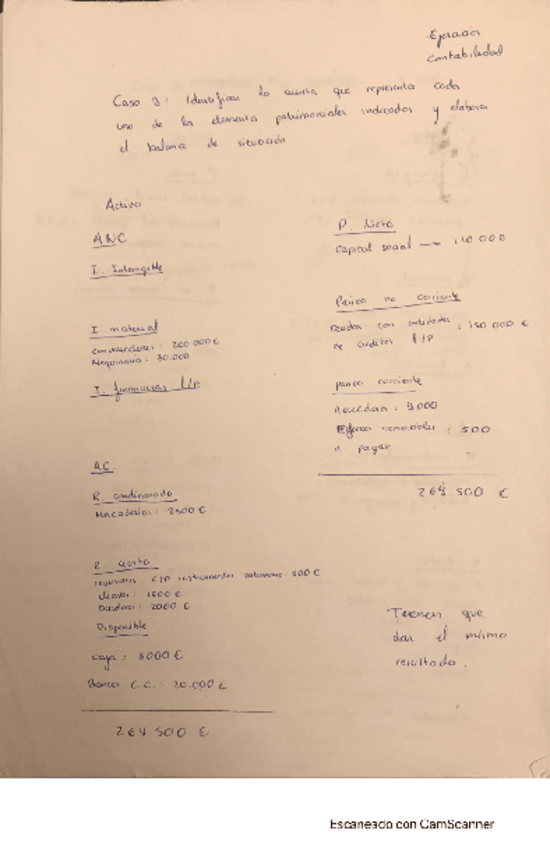 Ejercicios
Contabilidad
Caso 3: Identificar la cuenta que representa cada
uno de los elementos patrimoniales indicados y elaborar
el balance de situación
Activo
ANC
I. Intangible
I. material
Construcciones: 200.000€
Maquinaria: 30.000
I. financieras L/P
AC
R. condicionado
Mercaderías: 2500 €
R. cierto
Inversiones C/P instrumentos patrimonio: 500 €
clientes: 1500 €
Deudores: 2000 €
Disponible
Caja: 8000 €
Bancos C.C.: 20.000 €
264 500 €
P. Neto
Capital social → 110.000
Pasivo no corriente
Deudas con entidades : 150 000 €
de crédito L/P
pasivo corriente
Acreedores: 4000
Efectos comerciales : 500
a pagar
264.500 €
Tienen que
dar el mismo
resultado.
Escaneado con CamScanner